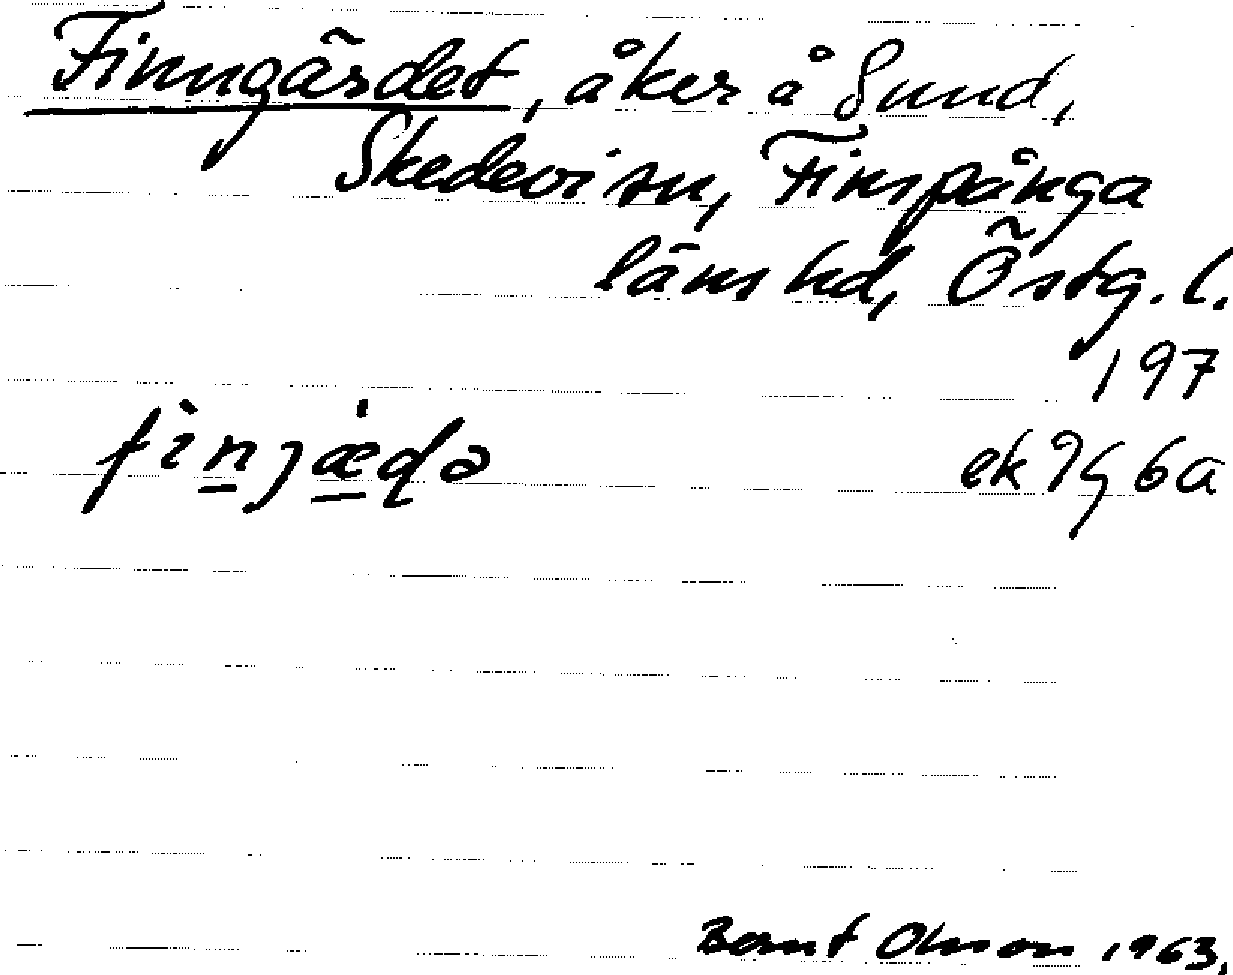 Finngärdet, åker å Sund,
Skedevi sn, Finspånga
läns hd, Östg. l.
197
finjæɖə
ek 9G 6a
Bernt Olsson 1963.